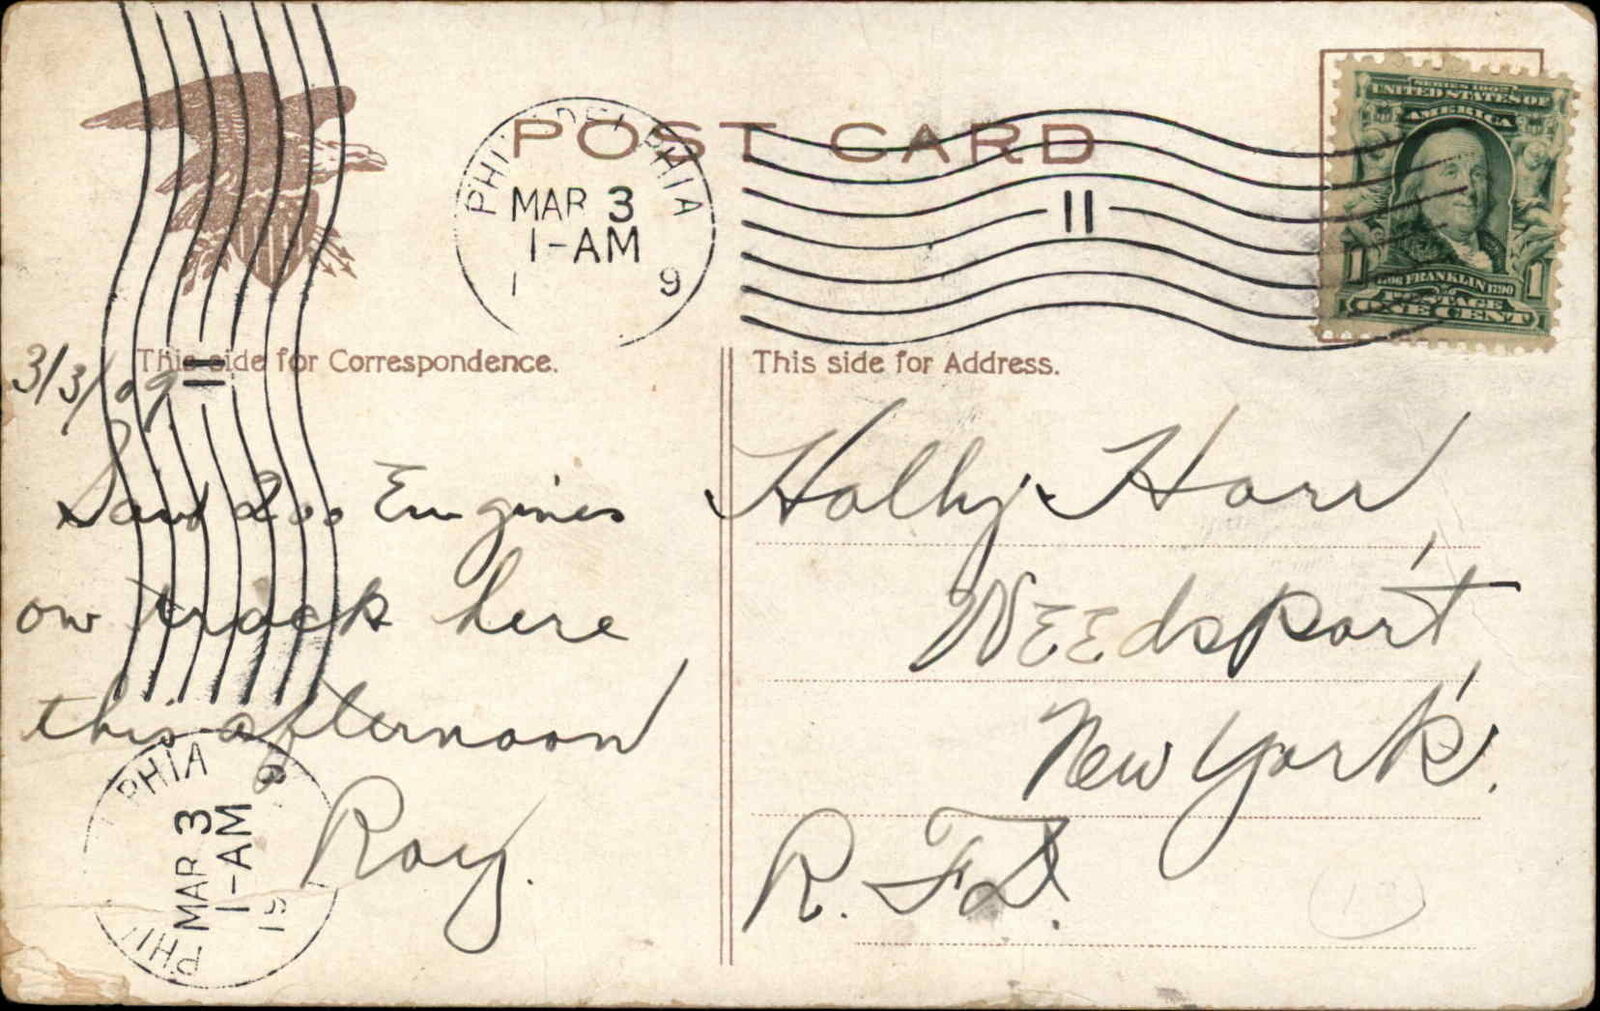 POST CARD
PHILADELPHIA
MAR 3
1-AM
19
11
SERIES 1902
UNITED STATES OF
AMERICA
1 1706 FRANKLIN 1790 1
POSTAGE
ONE CENT
This side for Correspondence.
This side for Address.
3/3/09
Saw 200 Engines
on track here
this afternoon
Roy.
Holly Horr
WEEdsport
New York.
R. F. D.
PHIL PHIA
MAR 3
1-AM
19 9
11